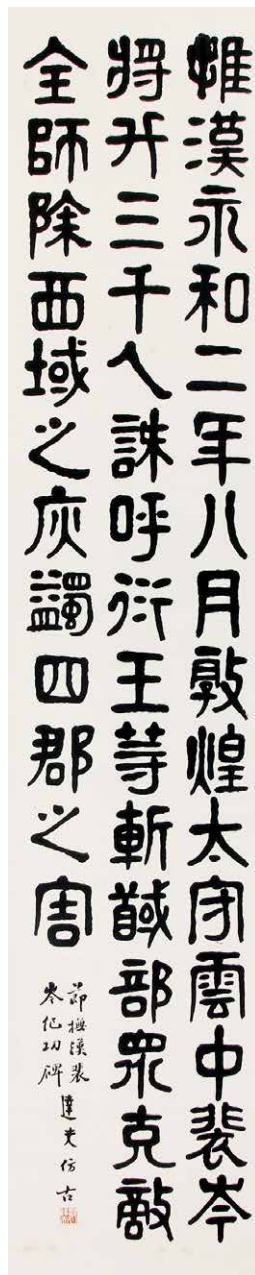 惟漢永和二年八月敦煌太守雲中裴岑
將兵三千人誅呼衍王等斬馘部眾克敵
全師除西域之疢蠲四郡之害
節橅漢裴
岑紀功碑
達夫仿古